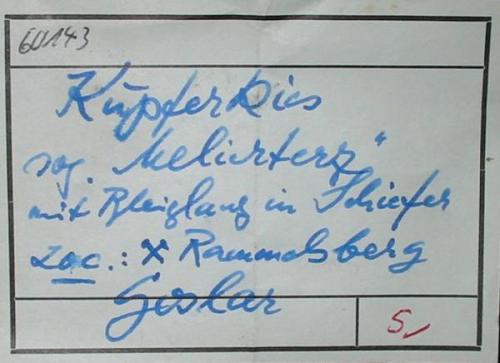 60143
Kupferkies
sog. „Melierterz“
mit Bleiglanz in Schiefer
Loc.: ⚒ Rammelsberg
Goslar
5,-